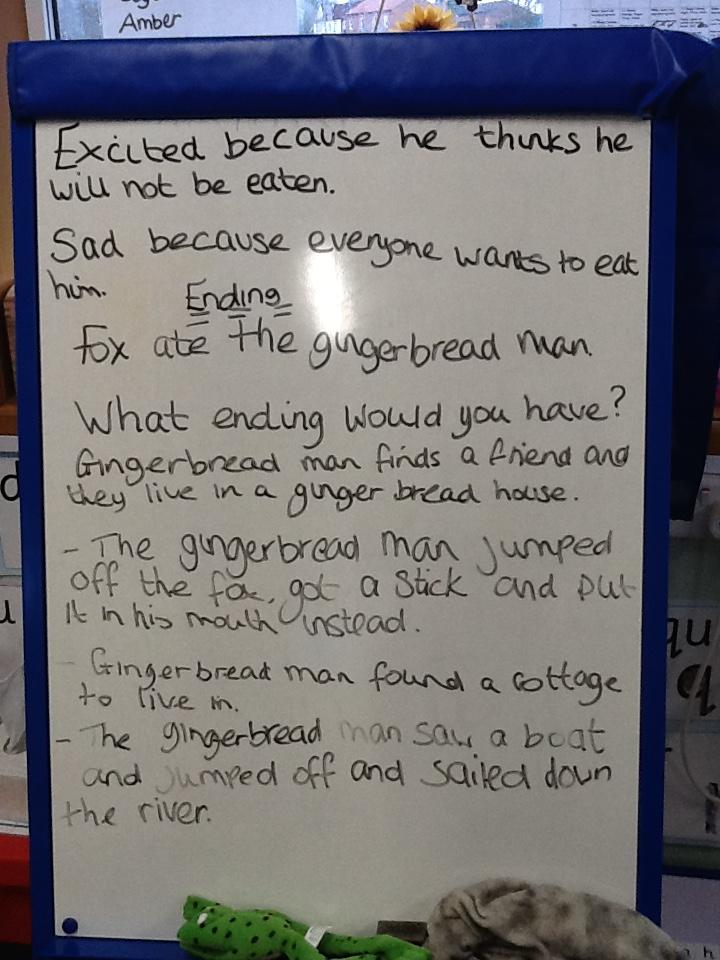 Amber
Excited because he thinks he
will not be eaten.
Sad because everyone wants to eat
him.
Ending
Fox ate the gingerbread man.
What ending would you have?
Gingerbread man finds a friend and
they live in a ginger bread house.
- The gingerbread man jumped
off the fox, got a stick and put
it in his mouth instead.
- Gingerbread man found a cottage
to live in.
- The gingerbread man saw a boat
and jumped off and sailed down
the river.
d
u
qu
q